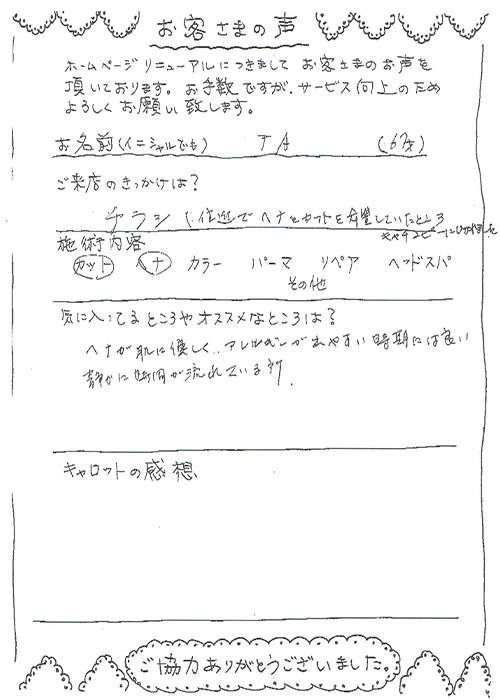 お客さまの声
ホームページリニューアルにつきまして お客さまのお声を
頂いております。お手数ですが、サービス向上のため
よろしくお願い致します。
お名前(イニシャルでも) T A (67才)
ご来店のきっかけは?
チラシ(住近でヘナとカットを希望していたところ
キャチコピーにひかれました
施術内容
カット ヘナ カラー パーマ リペア ヘッドスパ
その他
気に入ってるところやオススメなところは?
ヘナが肌に優しく、アレルゲンが出やすい時期には良い
静かに時間が流れている所
キャロットの感想
ご協力ありがとうございました。